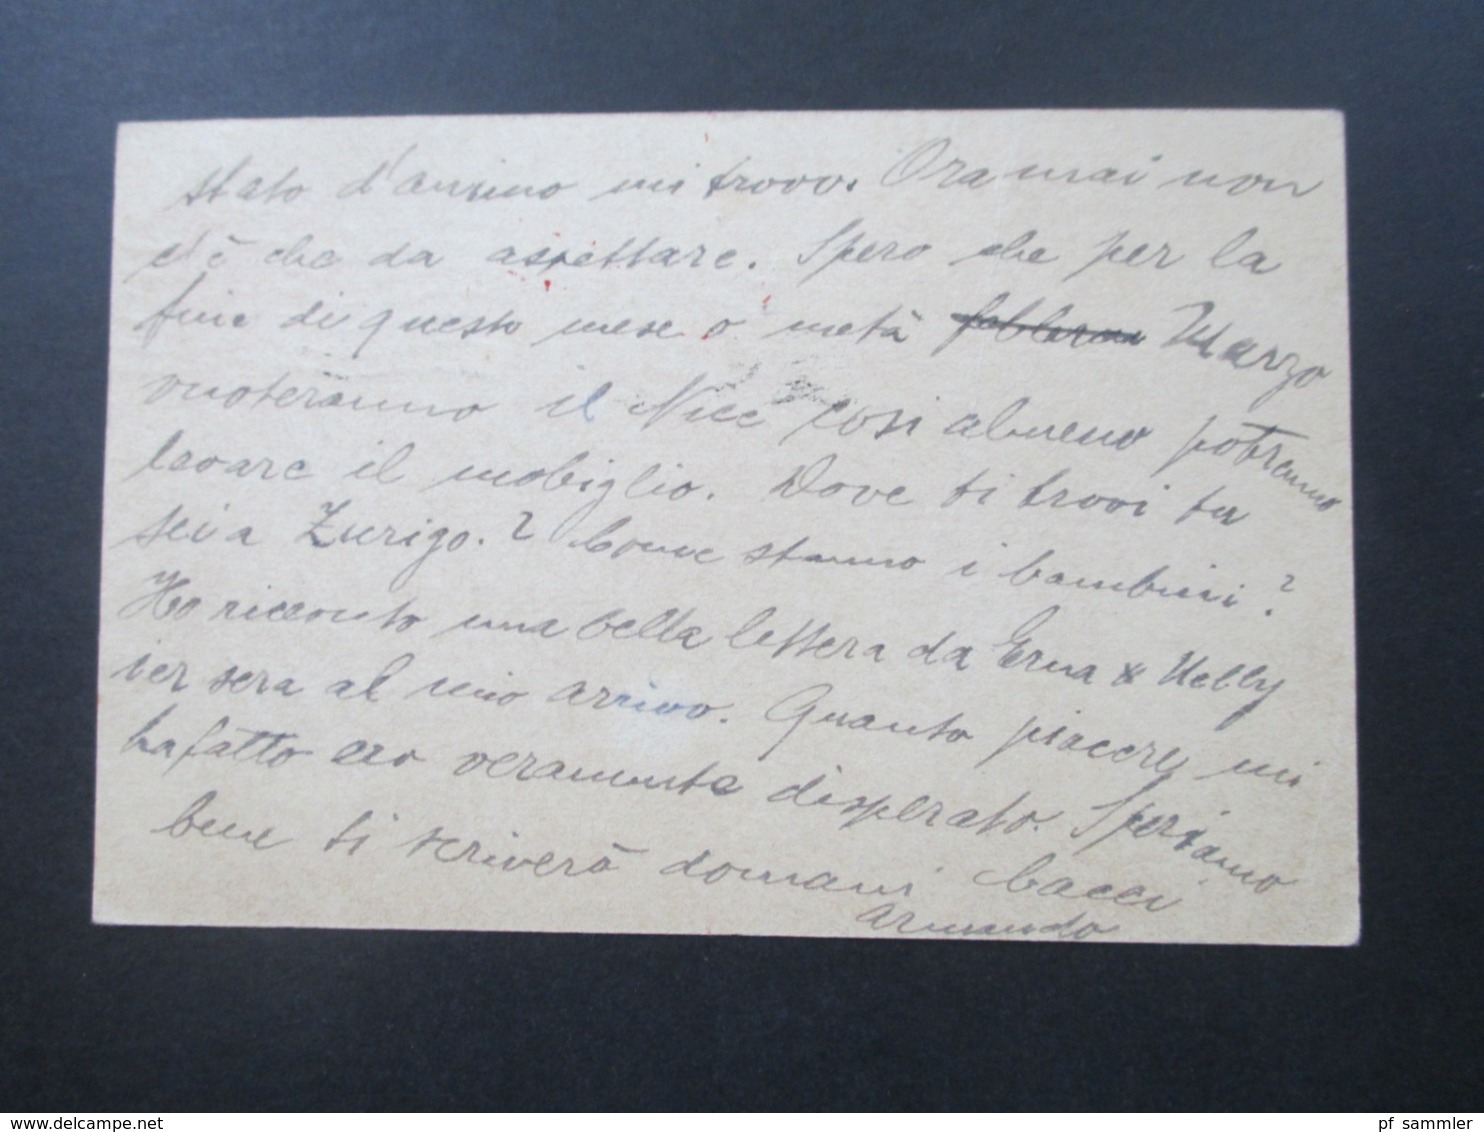 stato d'animo mi trovo. Oramai non
c'è che da aspettare. Spero che per la
fine di questo mese o metà febbraio Marzo
vuoteranno il Nice così almeno potranno
levare il mobiglio. Dove ti trovi tu
sei a Zurigo.? Come stanno i bambini?
Ho ricevuto una bella lettera da Erna & Nelly
ier sera al mio arrivo. Quanto piacere mi
ha fatto ero veramente disperato. Speriamo
bene ti scriverò domani bacci
Armando
delcampe.net
pf_sammler